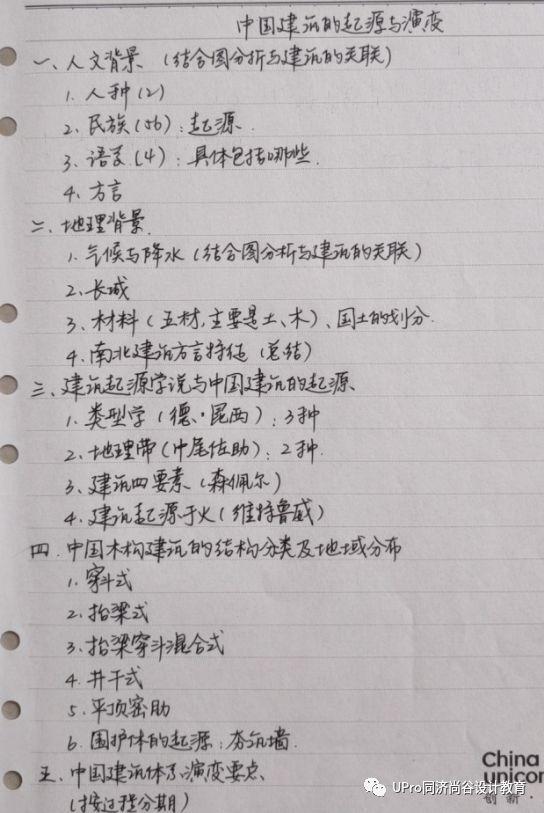 中国建筑的起源与演变
一、人文背景（结合图分析与建筑的关联）
1. 人种(2)
2. 民族(56)：起源.
3. 语言(4)：具体包括哪些.
4. 方言
二、地理背景.
1. 气候与降水（结合图分析与建筑的关联）
2. 长城
3. 材料（五材，主要是土、木）、国土的划分.
4. 南北建筑方言特征（总结）
三、建筑起源学说与中国建筑的起源、
1. 类型学（德·昆西）：3种
2. 地理带（中尾佐助）：2种.
3. 建筑四要素（森佩尔）
4. 建筑起源于火（维特鲁威）
四. 中国木构建筑的结构分类及地域分布
1. 穿斗式
2. 抬梁式
3. 抬梁穿斗混合式
4. 井干式
5. 平顶密肋
6. 围护体的起源：夯筑墙.
五. 中国建筑体系演变要点.
（按过程分期）
China
unicom
创新·
UPro同济尚谷设计教育